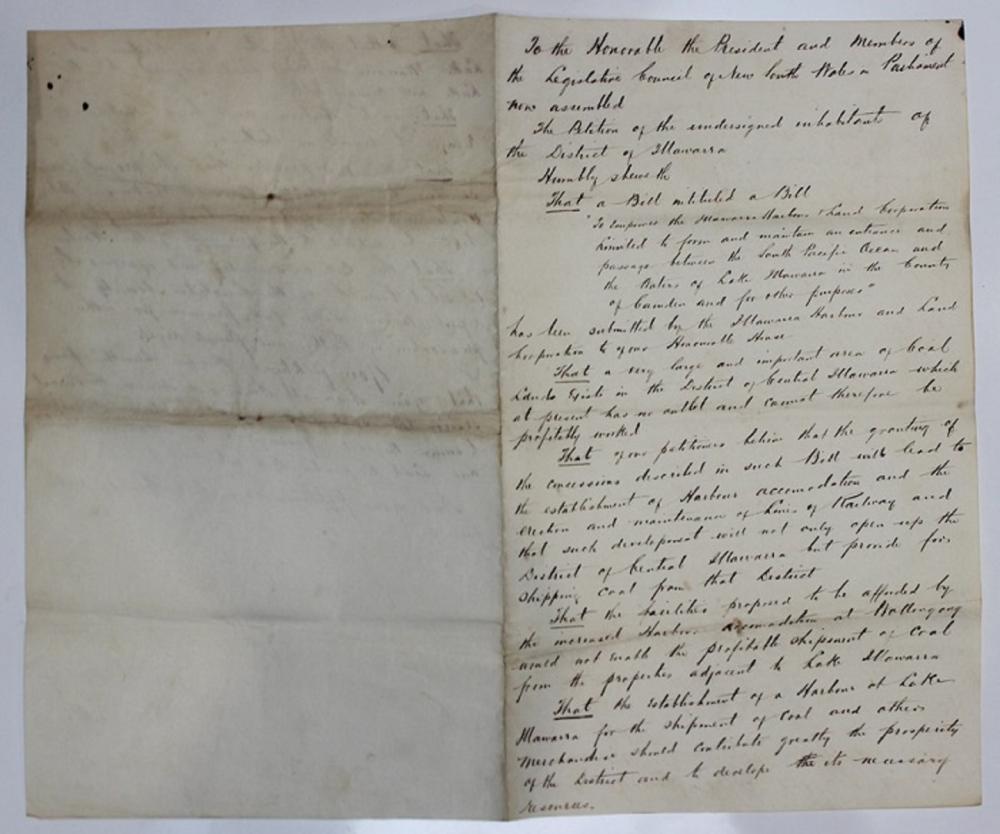 To the Honorable the President and Members of
the Legislative Council of New South Wales in Parliament
now assembled
The Petition of the undersigned inhabitants of
the District of Illawarra
Humbly sheweth
That a Bill intituled a Bill
"To empower the Illawarra Harbour & Land Corporation
Limited to form and maintain an entrance and
passage between the South Pacific Ocean and
the Waters of Lake Illawarra in the County
of Camden and for other purposes"
has been submitted by the Illawarra Harbour and Land
Corporation to your Honorable House
That a very large and important area of Coal
Lands exists in the District of Central Illawarra which
at present has no outlet and cannot therefore be
profitably worked
That your petitioners believe that the granting of
the concessions described in such Bill will lead to
the establishment of Harbour accomodation and the
erection and maintenance of Lines of Railway and
that such development will not only open up the
District of Central Illawarra but provide for
shipping coal from that District
That the facilities proposed to be afforded by
the increased Harbour accomodation at Wollongong
would not enable the profitable shipment of Coal
from the properties adjacent to Lake Illawarra
That the establishment of a Harbour at Lake
Illawarra for the shipment of Coal and other
Merchandise should contribute greatly the prosperity
of the District and to develope the its necessary
resources.